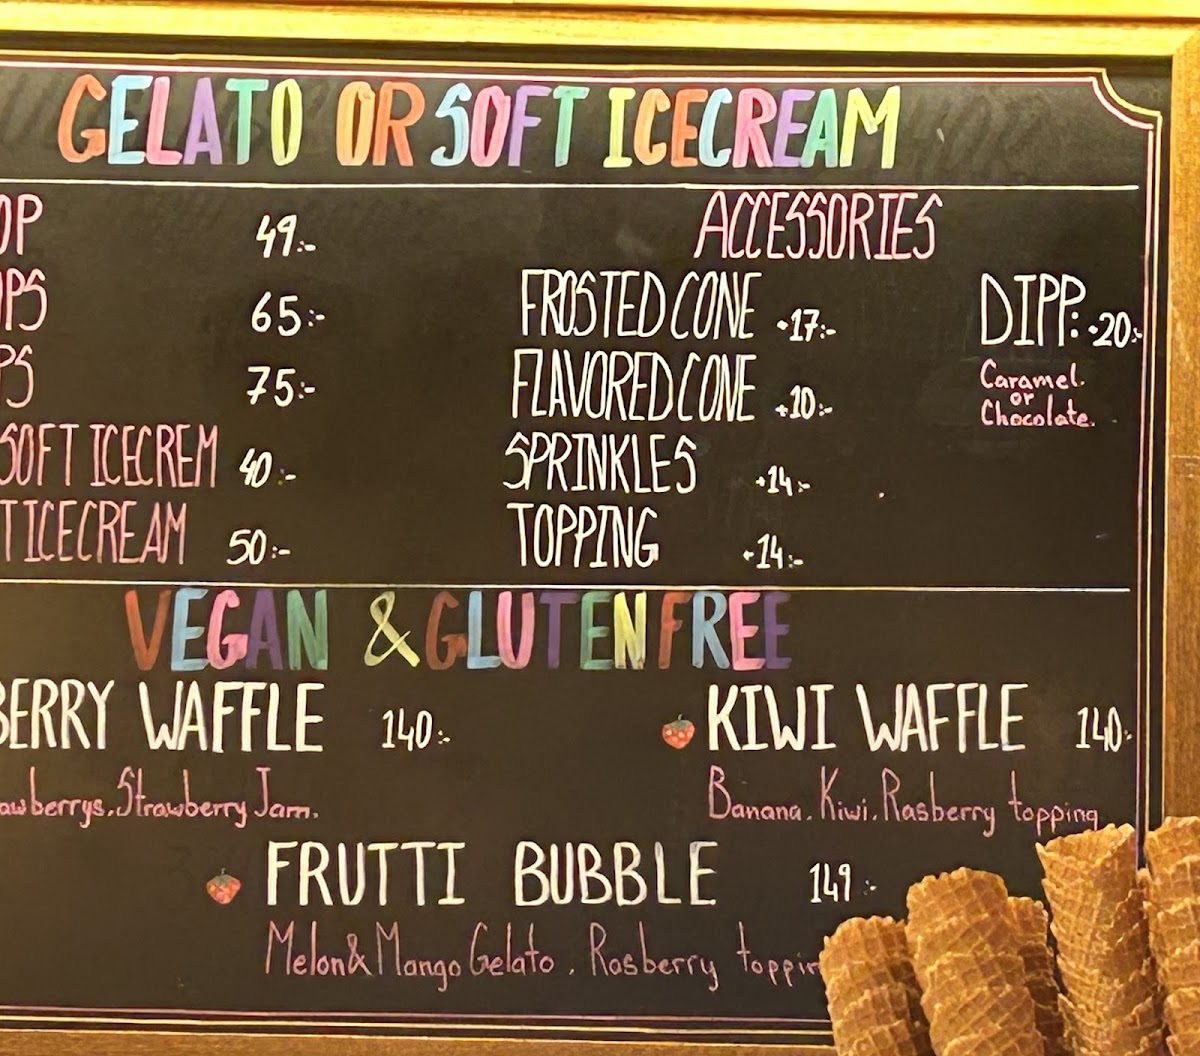 GELATO OR SOFT ICECREAM
OP 49:-
OPS 65:-
PS 75:-
SOFT ICECREM 40:-
T ICECREAM 50:-
ACCESSORIES
FROSTED CONE +17:-
FLAVORED CONE +10:-
SPRINKLES +14:-
TOPPING +14:-
DIPP: +20:-
Caramel.
or
Chocolate.
VEGAN & GLUTENFREE
BERRY WAFFLE 140:-
awberrys. Strawberry Jam.
KIWI WAFFLE 140:-
Banana. Kiwi. Rasberry topping
FRUTTI BUBBLE 149:-
Melon & Mango Gelato. Rasberry toppin